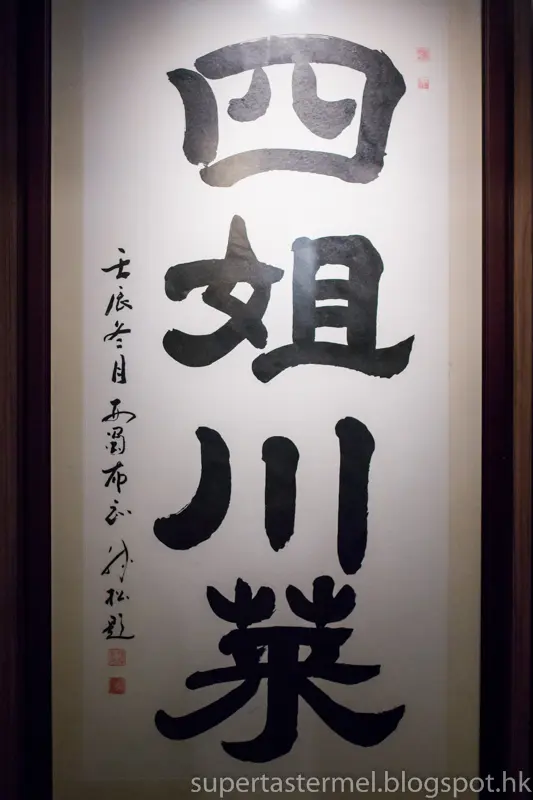 四姐川菜
壬辰冬月西蜀布衣松题
supertastermel.blogspot.hk